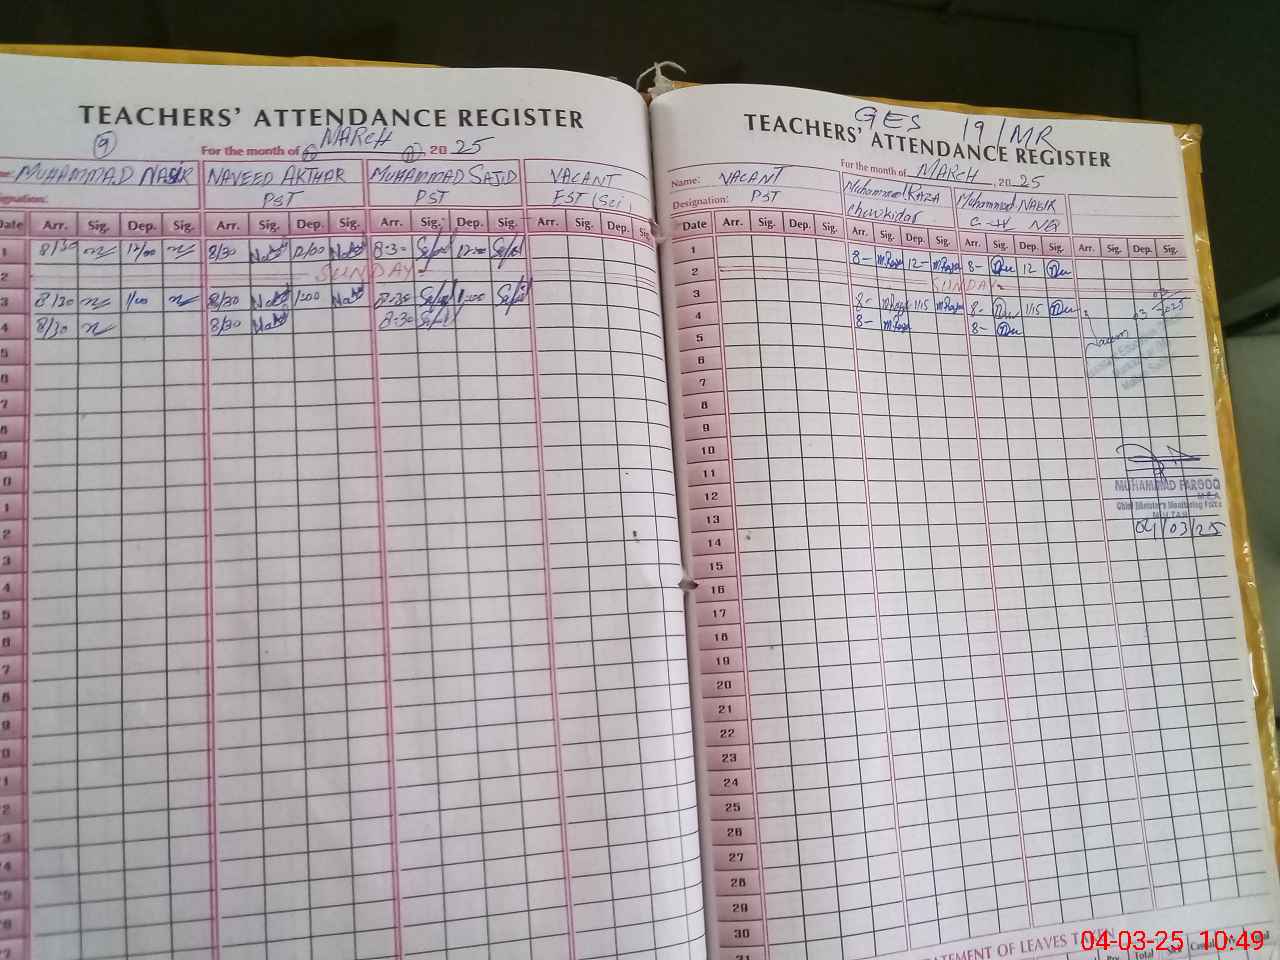 TEACHERS' ATTENDANCE REGISTER
9
For the month of MARCH 2025
MUHAMMAD NASIR NAVEED AKTHAR MUHAMMAD SAJID VACANT
PST PST EST (Sci)
Date Arr. Sig. Dep. Sig. Arr. Sig. Dep. Sig. Arr. Sig. Dep. Sig. Arr. Sig. Dep. Sig.
1 8/30 12/00 8/30 12/00 8-30 12:00
2 SUNDAY
3 8/30 1:00 8/30 1:00 8-30 1:00
4 8/30 8/30 8-30
5
6
7
8
9
0
1
2
3
4
5
6
7
8
9
0
1
2
3
4
5
6
7
GES 19/MR
TEACHERS' ATTENDANCE REGISTER
For the month of MARCH, 2025
Name: VACANT Muhammad RAZA Muhammad NASIR
Designation: PST Chowkidar C-IV NQ
Date Arr. Sig. Dep. Sig. Arr. Sig. Dep. Sig. Arr. Sig. Dep. Sig. Arr. Sig. Dep. Sig.
1 8- MRaza 12- MRaza 8- 12
2 SUNDAY
3 8- MRaza 1:15 MRaza 8- 1:15
4 8- MRaza 8- 03 2025
5
6
7
8
9
10
11
12
13
14
15
16
17
18
19
20
21
22
23
24
25
26
27
28
29
30
31
MUHAMMAD FAROOQ
M.E.A
Chief Minister's Monitoring Force
MULTAN
04/03/25
STATEMENT OF LEAVES TAKEN
Total
04-03-25 10:49